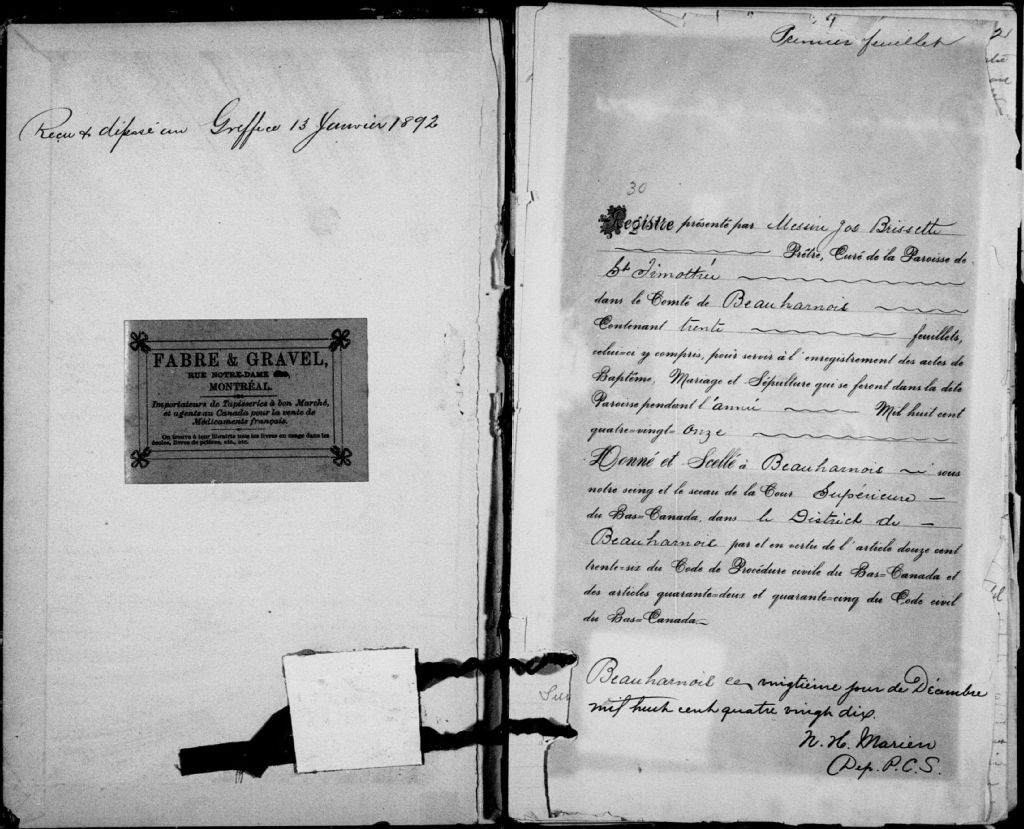 Reçu & déposé au Greffe ce 13 Janvier 1892
FABRE & GRAVEL,
RUE NOTRE-DAME
MONTRÉAL.
Importateurs de Tapisseries à bon Marché,
et agents au Canada pour la vente de
Médicaments français.
On trouve à leur librairie tous les livres en usage dans les
écoles, livres de prières, etc., etc.
Premier feuillet
30
Registre présenté par Messire Jos Brissette
Prêtre, Curé de la Paroisse de
St Timothée
dans le Comté de Beauharnois
Contenant trente feuillets,
celui-ci y compris, pour servir à l'enregistrement des actes de
Baptême, Mariage et Sépulture qui se feront dans la dite
Paroisse pendant l'année Mil huit cent
quatre-vingt-onze
Donné et Scellé à Beauharnois sous
notre seing et le sceau de la Cour Supérieure
du Bas-Canada, dans le District de
Beauharnois par et en vertu de l'article douze cent
trente-six du Code de Procédure civile du Bas-Canada et
des articles quarante-deux et quarante-cinq du Code civil
du Bas-Canada
Beauharnois ce vingtième jour de Décembre
mil huit cent quatre vingt dix.
N. H. Marien
Dep. P.C.S.